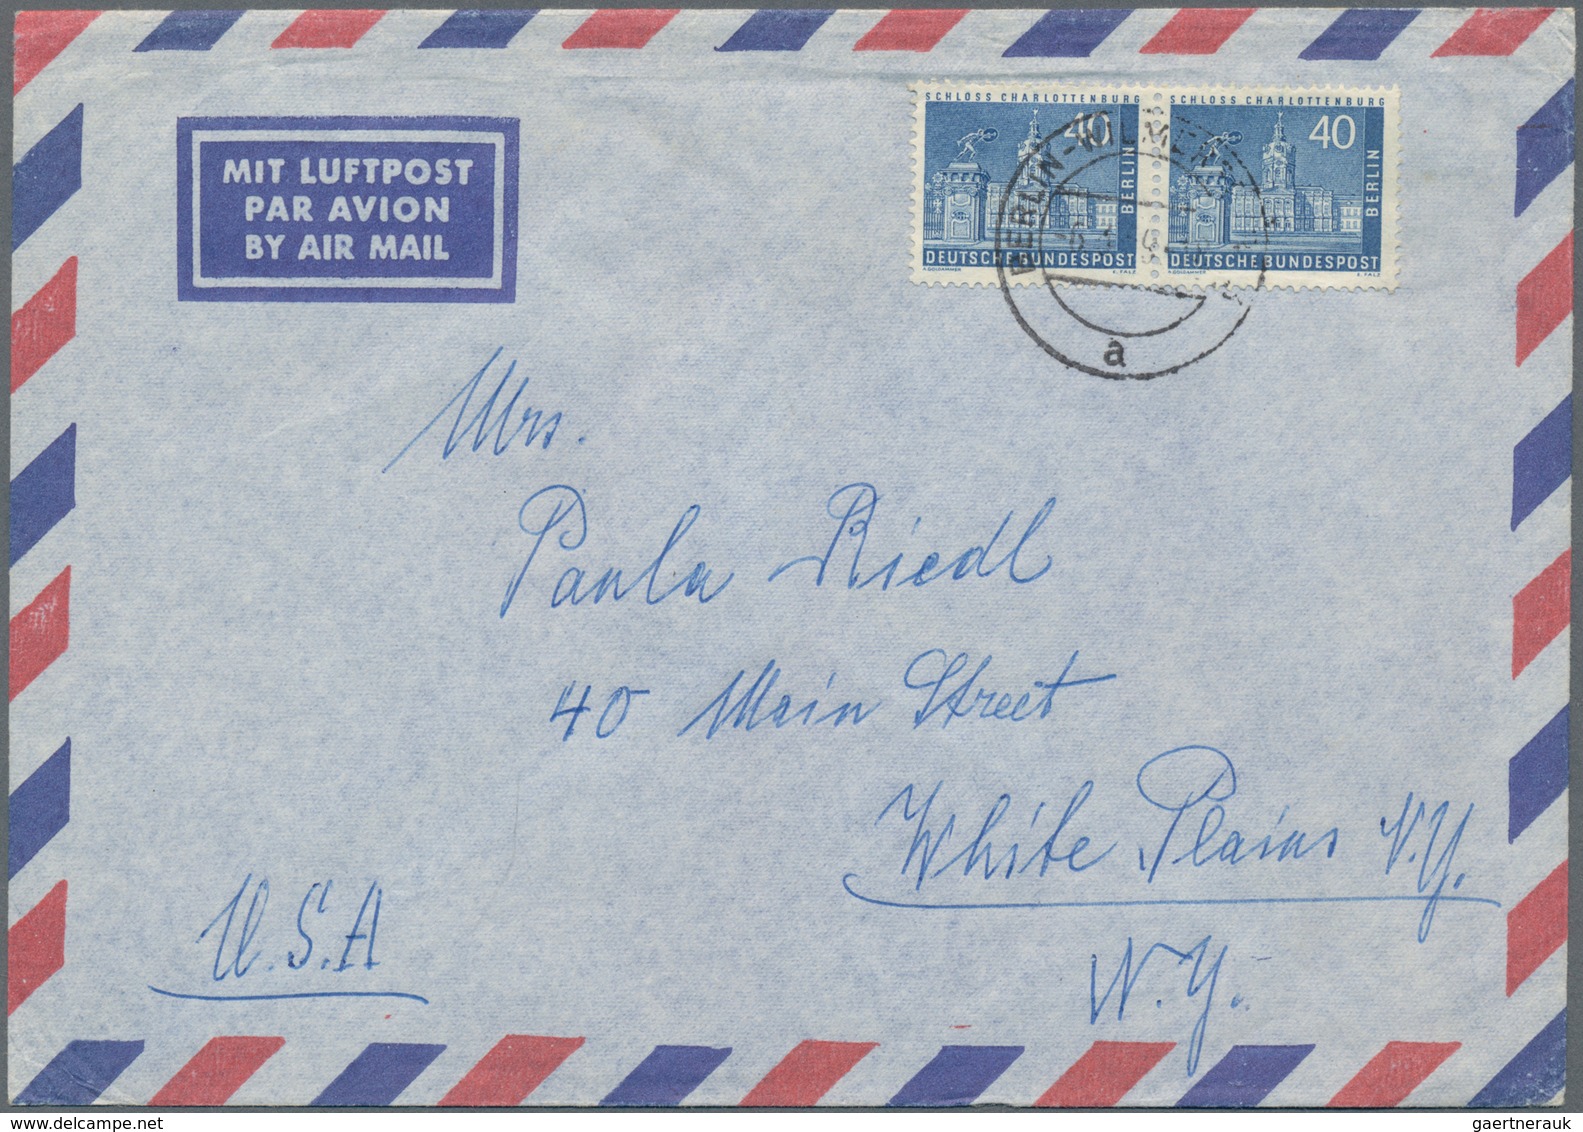 MIT LUFTPOST
PAR AVION
BY AIR MAIL
SCHLOSS CHARLOTTENBURG
40
BERLIN
DEUTSCHE BUNDESPOST
A. GOLDAMMER E. FALZ
SCHLOSS CHARLOTTENBURG
40
BERLIN
DEUTSCHE BUNDESPOST
A. GOLDAMMER E. FALZ
BERLIN-WILMER
a
Mrs.
Paula Riedl
40 Main Street
White Plains N.Y.
U.S.A
N.Y.
gaertnerauk